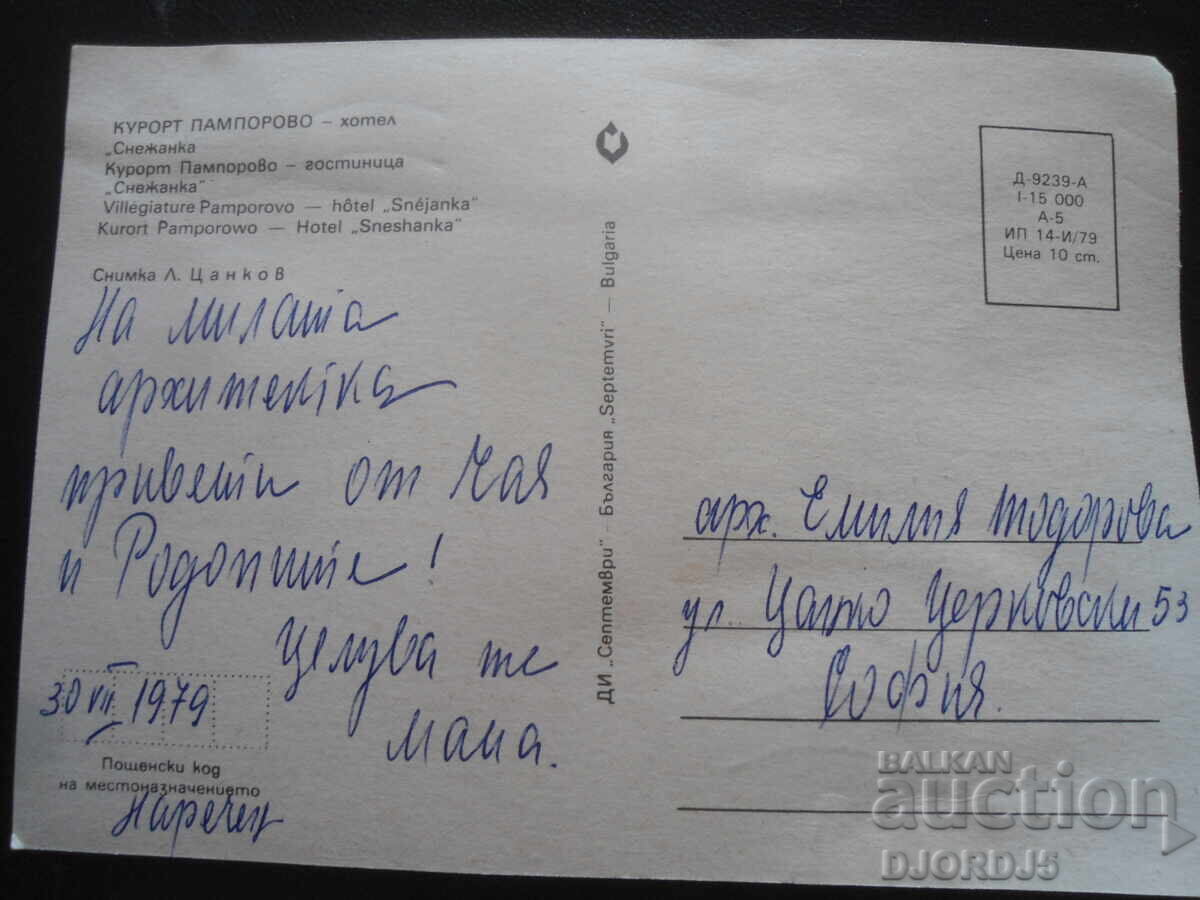 КУРОРТ ПАМПОРОВО – хотел
„Снежанка
Курорт Пампорово – гостиница
„Снежанка"
Villégiature Pamporovo — hôtel „Snéjanka"
Kurort Pamporowo — Hotel „Sneshanka"
Снимка Л. Цанков
На милата
архитектка
привети от Чая
и Родопите!
Целува те
мама.
30 VII 1979
Пощенски код
на местоназначението
Наречен
ДИ „Септември" – България „Septemvri" – Bulgaria
Д-9239-А
I-15 000
А-5
ИП 14-И/79
Цена 10 ст.
арх. Емилия Тодорова
ул. Цанко Церковски 53
София.
BALKAN
auction
DJORDJ5